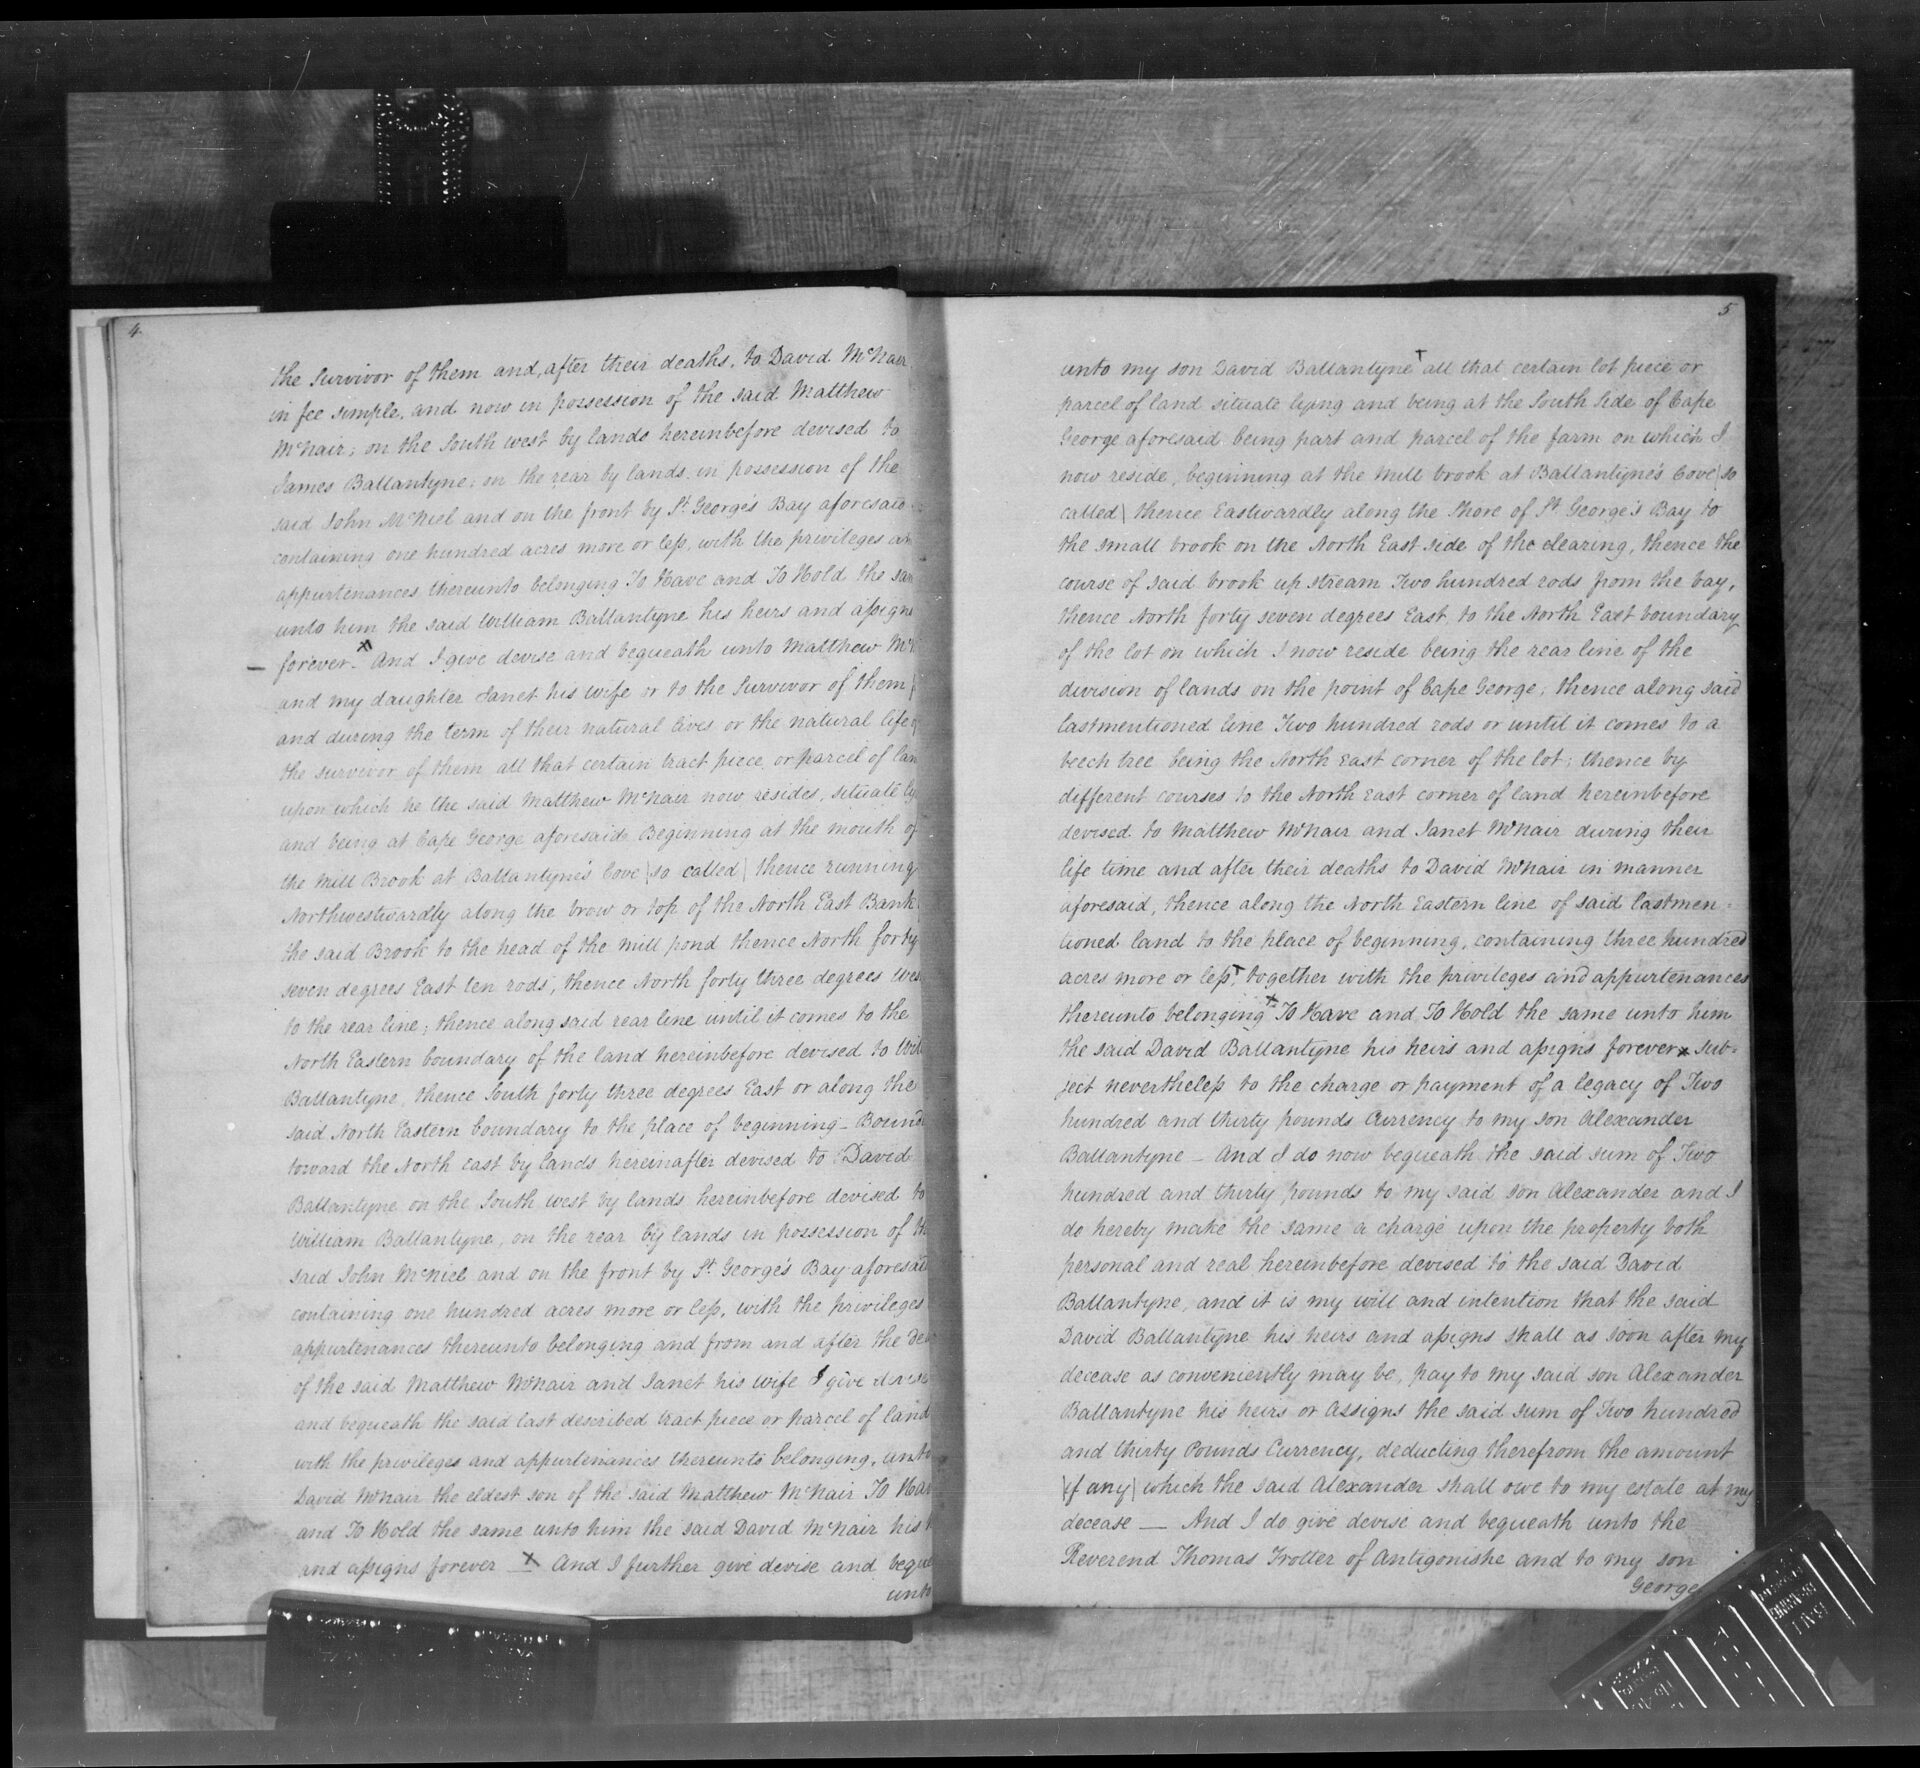 4.
the Survivor of them and, after their deaths, to David McNair
in fee simple, and now in possession of the said Matthew
McNair; on the South west by lands hereinbefore devised to
James Ballantyne; on the rear by lands in possession of the
said John McNiel and on the front by St. George's Bay aforesaid
containing one hundred acres more or less, with the privileges an
appurtenances thereunto belonging To Have and To Hold the sam
unto him the said William Ballantyne his heirs and assigns
forever - And I give devise and bequeath unto Matthew McN
and my daughter Janet his wife or to the Survivor of them
and during the term of their natural lives or the natural life o
the survivor of them all that certain tract piece or parcel of lan
upon which he the said Matthew McNair now resides, situate ly
and being at Cape George aforesaid Beginning at the mouth of
the Mill Brook at Ballantyne's Cove (so called) thence running
Northwestwardly along the brow or top of the North East Bank
the said Brook to the head of the mill pond thence North forty
seven degrees East ten rods, thence North forty three degrees Wes
to the rear line; thence along said rear line until it comes to the
North Eastern boundary of the land hereinbefore devised to Will
Ballantyne, thence South forty three degrees East or along the
said North Eastern boundary to the place of beginning - Bound
toward the North East by lands hereinafter devised to David
Ballantyne on the South west by lands hereinbefore devised to
William Ballantyne, on the rear by lands in possession of th
said John McNiel and on the front by St. George's Bay aforesaid
containing one hundred acres more or less, with the privileges
appurtenances thereunto belonging and from and after the de
of the said Matthew McNair and Janet his wife I give devise
and bequeath the said last described tract piece or parcel of land
with the privileges and appurtenances thereunto belonging, unto
David McNair the eldest son of the said Matthew McNair To Hav
and To Hold the same unto him the said David McNair his h
and assigns forever - x And I further give devise and beque
unto
5
unto my son David Ballantyne all that certain lot piece or
parcel of land situate lying and being at the South Side of Cape
George aforesaid being part and parcel of the farm on which I
now reside, beginning at the Mill brook at Ballantyne's Cove (so
called) thence Eastwardly along the Shore of St. George's Bay to
the small brook on the North East side of the clearing, thence the
course of said brook up stream Two hundred rods from the bay,
thence North forty seven degrees East to the North East boundary
of the lot on which I now reside being the rear line of the
division of lands on the point of Cape George; thence along said
lastmentioned line Two hundred rods or until it comes to a
beech tree being the North East corner of the lot; thence by
different courses to the North East corner of land hereinbefore
devised to Matthew McNair and Janet McNair during their
life time and after their deaths to David McNair in manner
aforesaid, thence along the North Eastern line of said lastmen-
tioned land to the place of beginning, containing three hundred
acres more or less, together with the privileges and appurtenances
thereunto belonging x To Have and To Hold the same unto him
the said David Ballantyne his heirs and assigns forever x sub-
ject nevertheless to the charge or payment of a legacy of Two
hundred and thirty pounds Currency to my son Alexander
Ballantyne - And I do now bequeath the said sum of Two
hundred and thirty pounds to my said son Alexander and I
do hereby make the same a charge upon the property both
personal and real hereinbefore devised to the said David
Ballantyne, and it is my will and intention that the said
David Ballantyne his heirs and assigns shall as soon after my
decease as conveniently may be, pay to my said son Alexander
Ballantyne his heirs or Assigns the said sum of Two hundred
and thirty Pounds Currency, deducting therefrom the amount
(if any) which the said Alexander shall owe to my estate at my
decease — And I do give devise and bequeath unto the
Reverend Thomas Trotter of Antigonishe and to my son
George